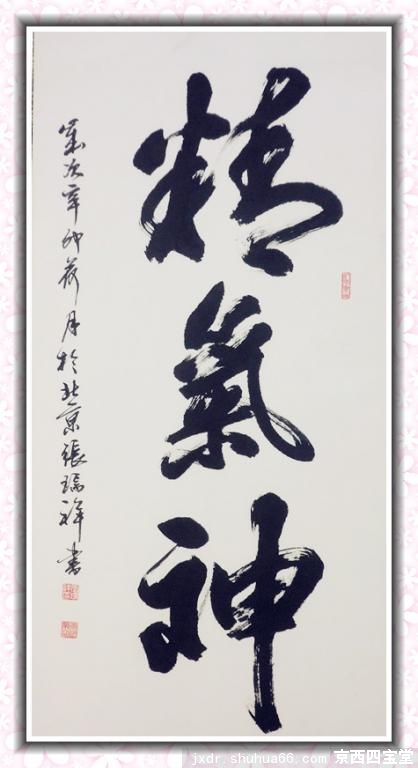 精氣神
歲次辛卯荷月於北京張瑞祥書
jxdr.shuhua66.com
京西四宝堂